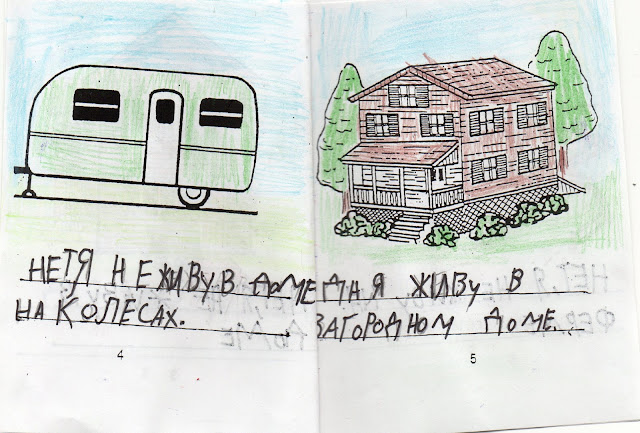 НЕТ Я НЕ ЖИВУ В ДОМЕ
НА КОЛЕСАХ.
4
ДА Я ЖИВУ В
ЗАГОРОДНОМ ДОМЕ.
5